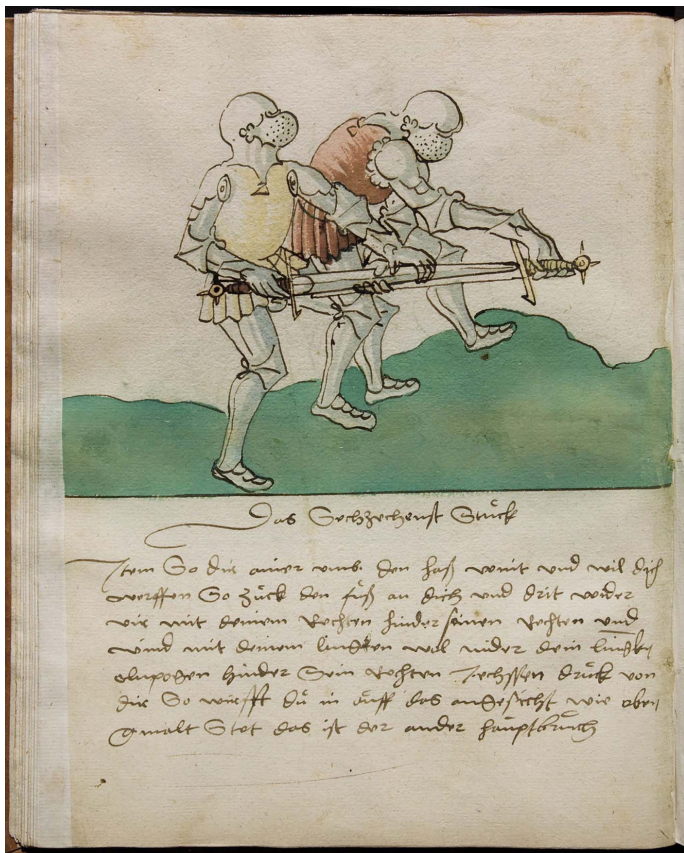 Das Sechzechenst Stuck
Item So dir ainer umb den haß wint und wil dich
werffen So zuck den fuß an dich und drit wider
vir mit deinem Rechten hinder seinen Rechten und
wind mit deinem lincken wol nider dein lincken
elnpogen hinder Sein Rechten Iechssen druck von
dir So wirffst du in auff das angesicht wie oben
gmalt Stet das ist der ander hauptbruch